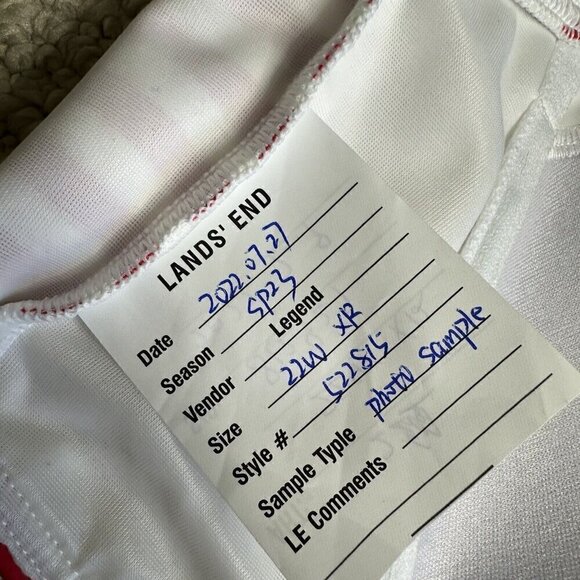 LANDS' END
Date 2022.07.27
Season SP23
Vendor Legend
Size 22W XR
Style # 522815
Sample Typle photo sample
LE Comments